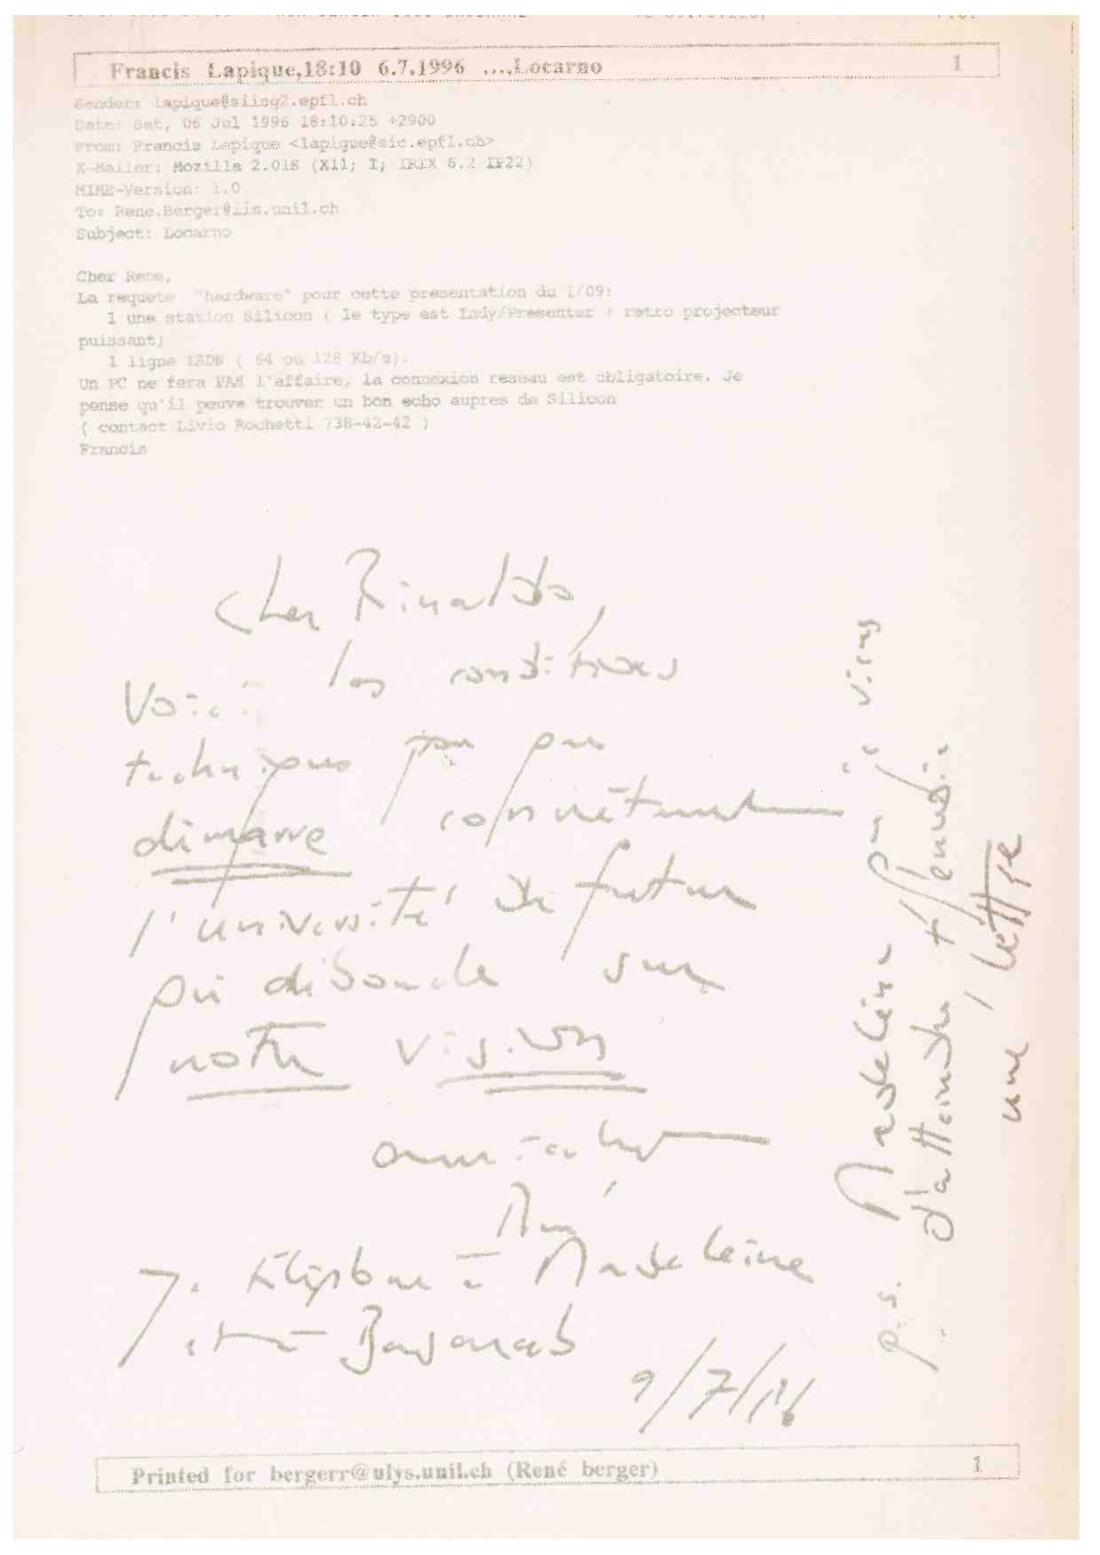 Francis Lapique,18:10 6.7.1996 ...,Locarno 1
Sender: lapique@siisg2.epfl.ch
Date: Sat, 06 Jul 1996 18:10:25 +2900
From: Francis Lapique <lapique@sic.epfl.ch>
X-Mailer: Mozilla 2.01S (X11; I; IRIX 6.2 IP22)
MIME-Version: 1.0
To: Rene.Berger@iis.unil.ch
Subject: Locarno
Cher Rene,
La requete "hardware" pour cette presentation du 1/09:
1 une station Silicon ( le type est Indy/Presenter + retro projecteur
puissant)
1 ligne ISDN ( 64 ou 128 Kb/s).
Un PC ne fera PAS l'affaire, la connexion reseau est obligatoire. Je
pense qu'il peuve trouver un bon echo aupres de Silicon
( contact Livio Rochetti 738-42-42 )
Francis
Cher Rinaldo,
Voici les conditions
techniques pour que
démarre concrètement
l'université du futur
qui débouche sur
notre vision
amicalement
René
J. téléphone à Madeleine
9/7/96
p.s. Madeleine qui vient
d'atteindre
une lettre
Printed for bergerr@ulys.unil.ch (René berger) 1